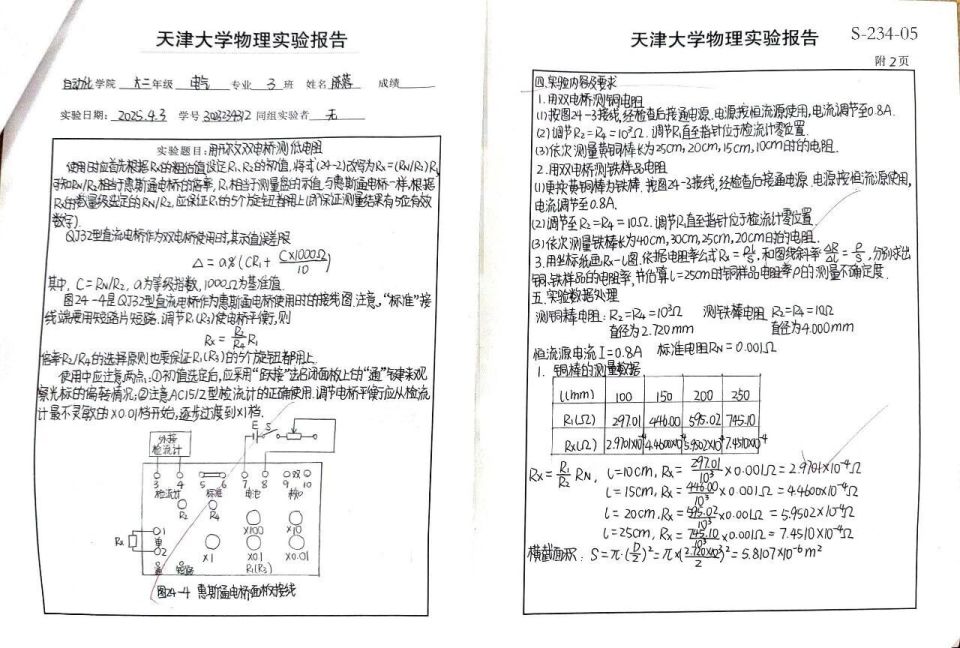 天津大学物理实验报告
自动化学院 大二年级 电气专业 3班 姓名 成绩
实验日期: 2025.4.3 学号 同组实验者 无
实验题目: 用双电桥测低电阻
使用时应首先根据Rx的粗估值设定R₁、R₂的初值, 将式(24-2)改写为Rx=(RN/R₂)R₁
可知RN/R₂相当于惠斯通电桥的倍率, R₁相当于测量盘的示值, 与惠斯通电桥一样, 根据
Rx的数量级选定的RN/R₂, 应保证R₁的5个旋钮都用上(即保证测量结果有5位有效
数字).
QJ32型直流电桥作为双电桥使用时, 其示值误差限
Δ=a%(CR₁+C×1000Ω/10)
其中, C=RN/R₂, a为等级指数, 1000Ω为基准值.
图24-4是QJ32型直流电桥作为惠斯通电桥使用时的接线图. 注意, “标准”接
线端要用短路片短路. 调节R₁(R₃)使电桥平衡, 则
Rx=R₂/R₄ R₁
倍率R₂/R₄的选择原则也要保证R₁(R₃)的5个旋钮都用上.
使用中应注意两点: ①初值选定后, 应采用“跃接”法闭面板上的“通”键来观
察光标的偏转情况; ②注意AC15/2型检流计的正确使用. 调节电桥平衡应从检流
计最不灵敏的×0.01档开始, 逐步过渡到×1档.
E S
外接
检流计
3 4 5 6 7 8 9 10
双
检流计 标准 电池
R₂ R₄
×100 ×10
Rx
1
单
2
×1 ×0.1 ×0.01
通 短路 R₁(R₃)
图24-4 惠斯通电桥面板接线
天津大学物理实验报告 S-234-05
附2页
四. 实验内容及要求
1. 用双电桥测铜电阻
(1)按图24-3接线, 经检查后接通电源. 电源按恒流源使用, 电流调节至0.8A.
(2)调节R₂=R₄=10³Ω. 调节R₁直至指针位于检流计零位置.
(3)依次测量黄铜棒长为25cm, 20cm, 15cm, 10cm时的电阻.
2. 用双电桥测铁样品电阻
(1)更换黄铜棒为铁棒. 按图24-3接线, 经检查后接通电源. 电源按恒流源使用,
电流调节至0.8A.
(2)调节至R₂=R₄=10Ω. 调节R₁直至指针位于检流计零位置.
(3)依次测量铁棒长为40cm, 30cm, 25cm, 20cm时的电阻.
3. 用坐标纸画Rx-L图. 依据电阻率公式Rx=ρL/S, 和图线斜率ΔR/ΔL=ρ/S, 分别求出
铜、铁样品的电阻率, 并估算L=25cm时铜样品电阻率ρ的测量不确定度.
五. 实验数据处理
测铜棒电阻: R₂=R₄=10³Ω 测铁棒电阻 R₂=R₄=10Ω
直径为2.720mm 直径为4.000mm
恒流源电流I=0.8A 标准电阻RN=0.001Ω
1. 铜棒的测量数据
L(mm) 100 150 200 250
R₁(Ω) 297.01 446.00 595.02 745.10
Rx(Ω) 2.9701×10⁻⁴ 4.4600×10⁻⁴ 5.9502×10⁻⁴ 7.4510×10⁻⁴
Rx=R₁/R₂ RN, L=10cm, Rx=297.01/10³×0.001Ω=2.9701×10⁻⁴Ω
L=15cm, Rx=446.00/10³×0.001Ω=4.4600×10⁻⁴Ω
L=20cm, Rx=595.02/10³×0.001Ω=5.9502×10⁻⁴Ω
L=25cm, Rx=745.10/10³×0.001Ω=7.4510×10⁻⁴Ω
横截面积: S=π·(D/2)²=π×(2.720×10⁻³/2)²=5.8107×10⁻⁶m²